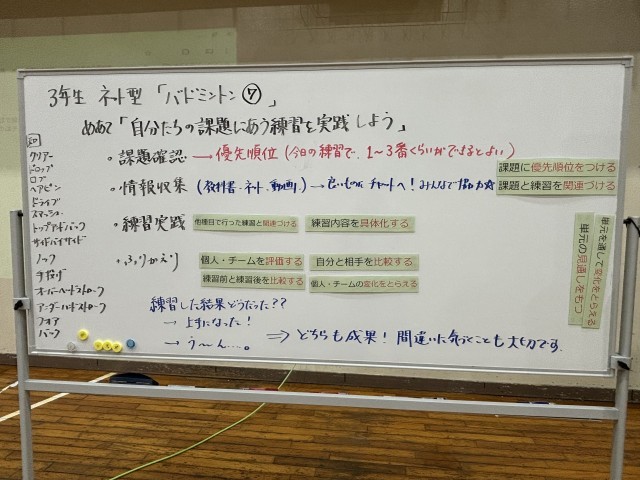 3年生 ネット型 「バドミントン⑦」
めあて「自分たちの課題にあう練習を実践しよう」
・課題確認 → 優先順位 (今日の練習で、1〜3番くらいができるとよい)
課題に優先順位をつける
・情報収集 (教科書・ネット・動画) → 良いものはチャートへ!みんなで協力
課題と練習を関連づける
・練習実践
他種目で行った練習と関連づける
練習内容を具体化する
・ふりかえり
個人・チームを評価する
自分と相手を比較する
練習前と練習後を比較する
個人・チームの変化をとらえる
練習した結果どうだった??
→ 上手になった!
→ う〜ん…。
⇒ どちらも成果! 間違いに気づくことも大切です。
クリアー
ドロップ
ロブ
ヘアピン
ドライブ
スマッシュ
トップアンドバック
サイドバイサイド
ノック
手投げ
オーバーヘッドストローク
アンダーハンドストローク
フォア
バック
単元を通して変化をとらえる
単元の見通しをもつ